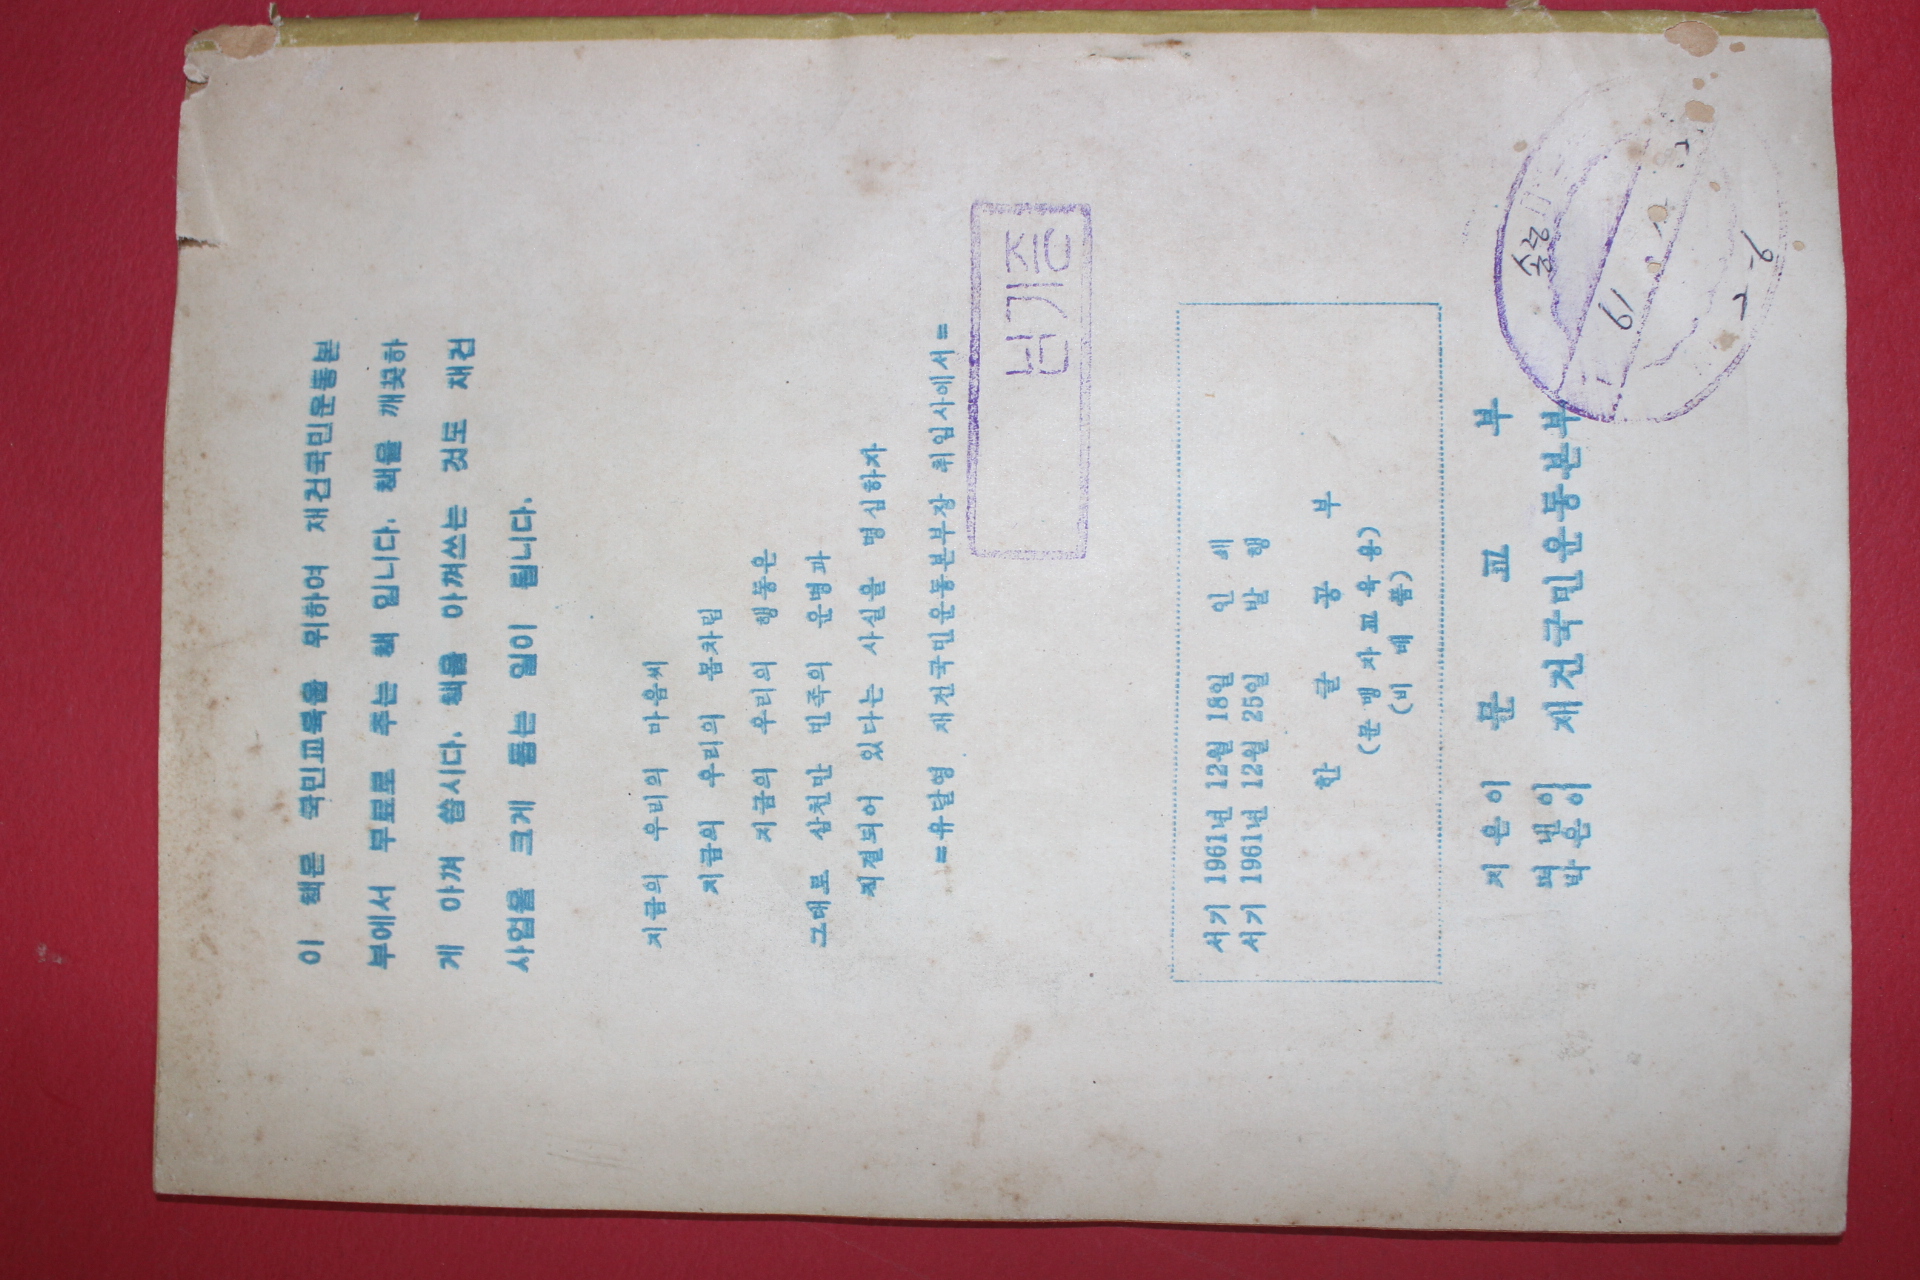 이 책은 국민교육을 위하여 재건국민운동본
부에서 무료로 주는 책 입니다. 책을 깨끗하
게 아껴 씁시다. 책을 아껴쓰는 것도 재건
사업을 크게 돕는 일이 됩니다.
지금의 우리의 마음씨
지금의 우리의 몸차림
지금의 우리의 행동은
그대로 삼천만 민족의 운명과
직결되어 있다는 사실을 명심하자
=유달영 재건국민운동본부장 취임사에서=
남기종
서기 1961년 12월 18일 인쇄
서기 1961년 12월 25일 발행
한글공부
(문맹자교육용)
(비매품)
지은이 문교부
펴낸이
박은이 재건국민운동본부
61